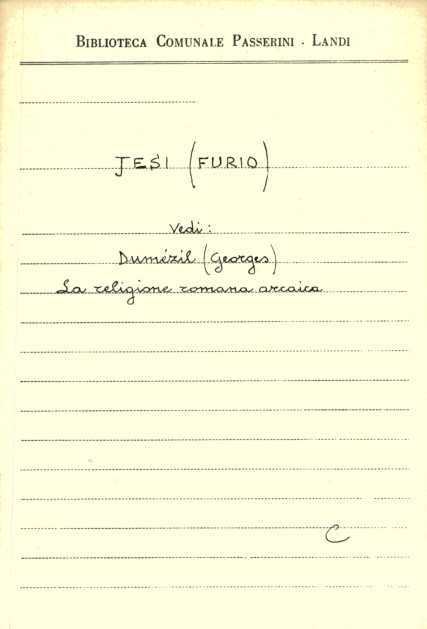 BIBLIOTECA COMUNALE PASSERINI - LANDI
JESI (FURIO)
Vedi:
Dumézil (Georges)
La religione romana arcaica
C